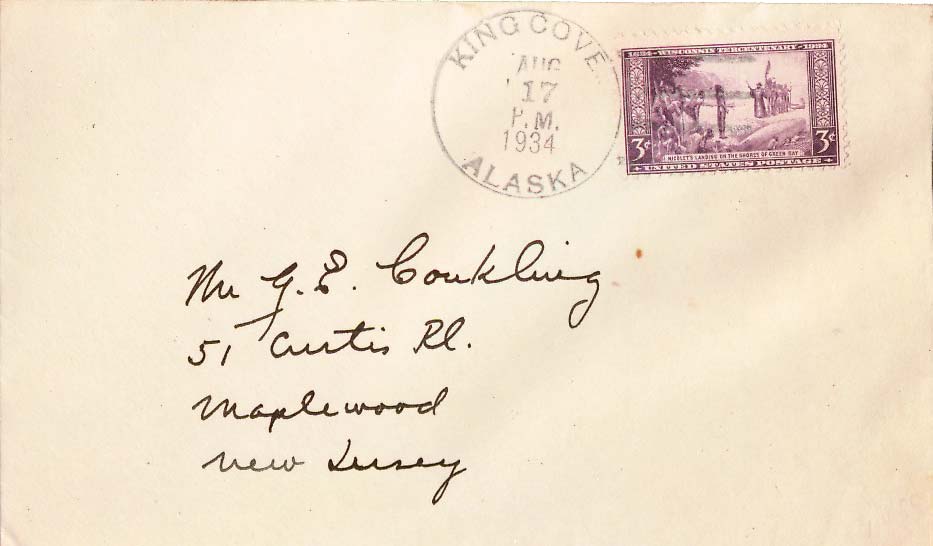 KING COVE
AUG
17
P.M.
1934
ALASKA
1634 - WISCONSIN TERCENTENARY - 1934
3¢ 3¢
NICOLET'S LANDING ON THE SHORES OF GREEN BAY
UNITED STATES POSTAGE
Mr G. E. Conkling
51 Curtis Pl.
Maplewood
New Jersey